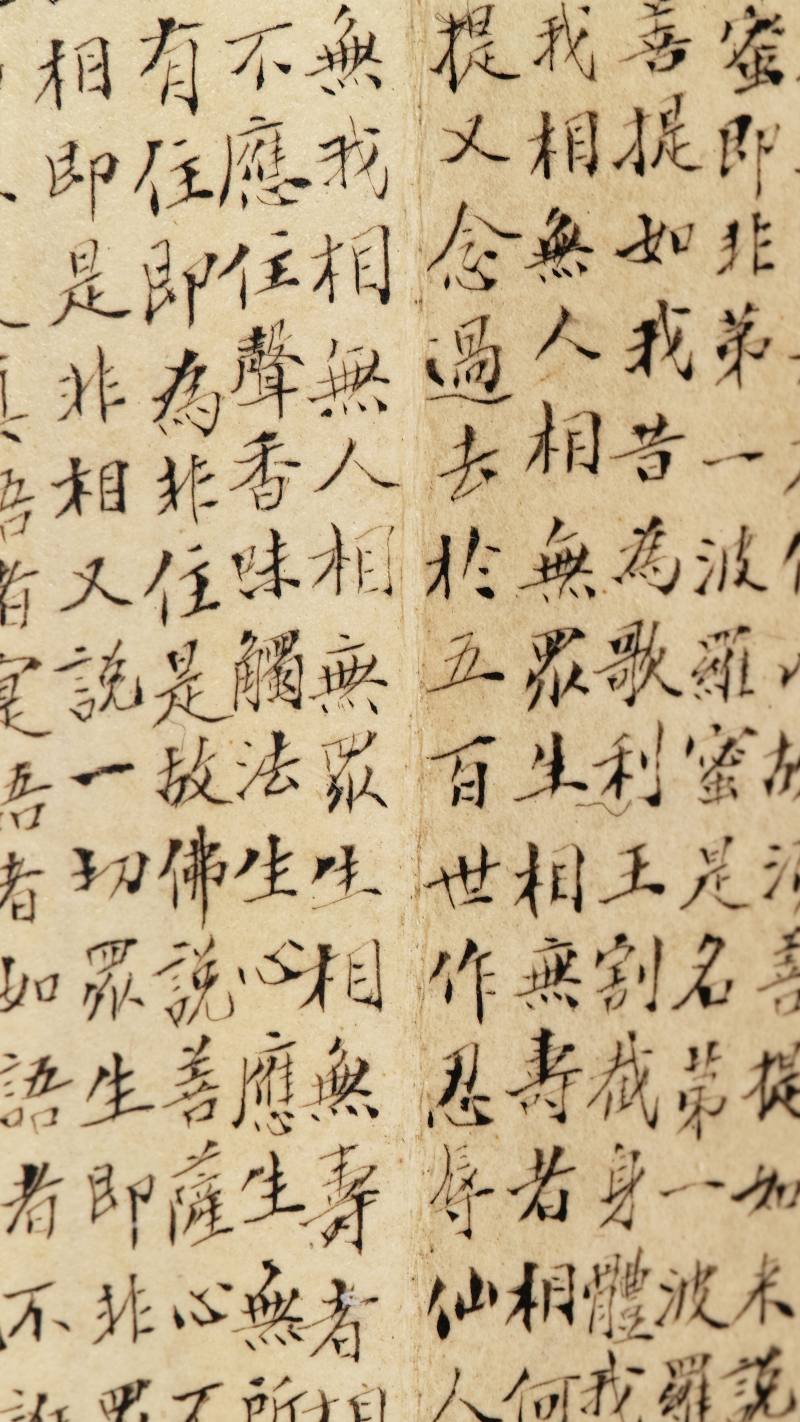 提如来說
蜜即非苐一波羅蜜是名苐一波羅
善提如我昔為歌利王割截身體我
我相無人相無眾生相無壽者相何
提又念過去於五百世作忍辱仙人
無我相無人相無眾生相無壽者相
不應住聲香味觸法生心應生無所
有住即為非住是故佛說善薩心不
相即是非相又說一切眾生即非眾
語者寔語者如語者不